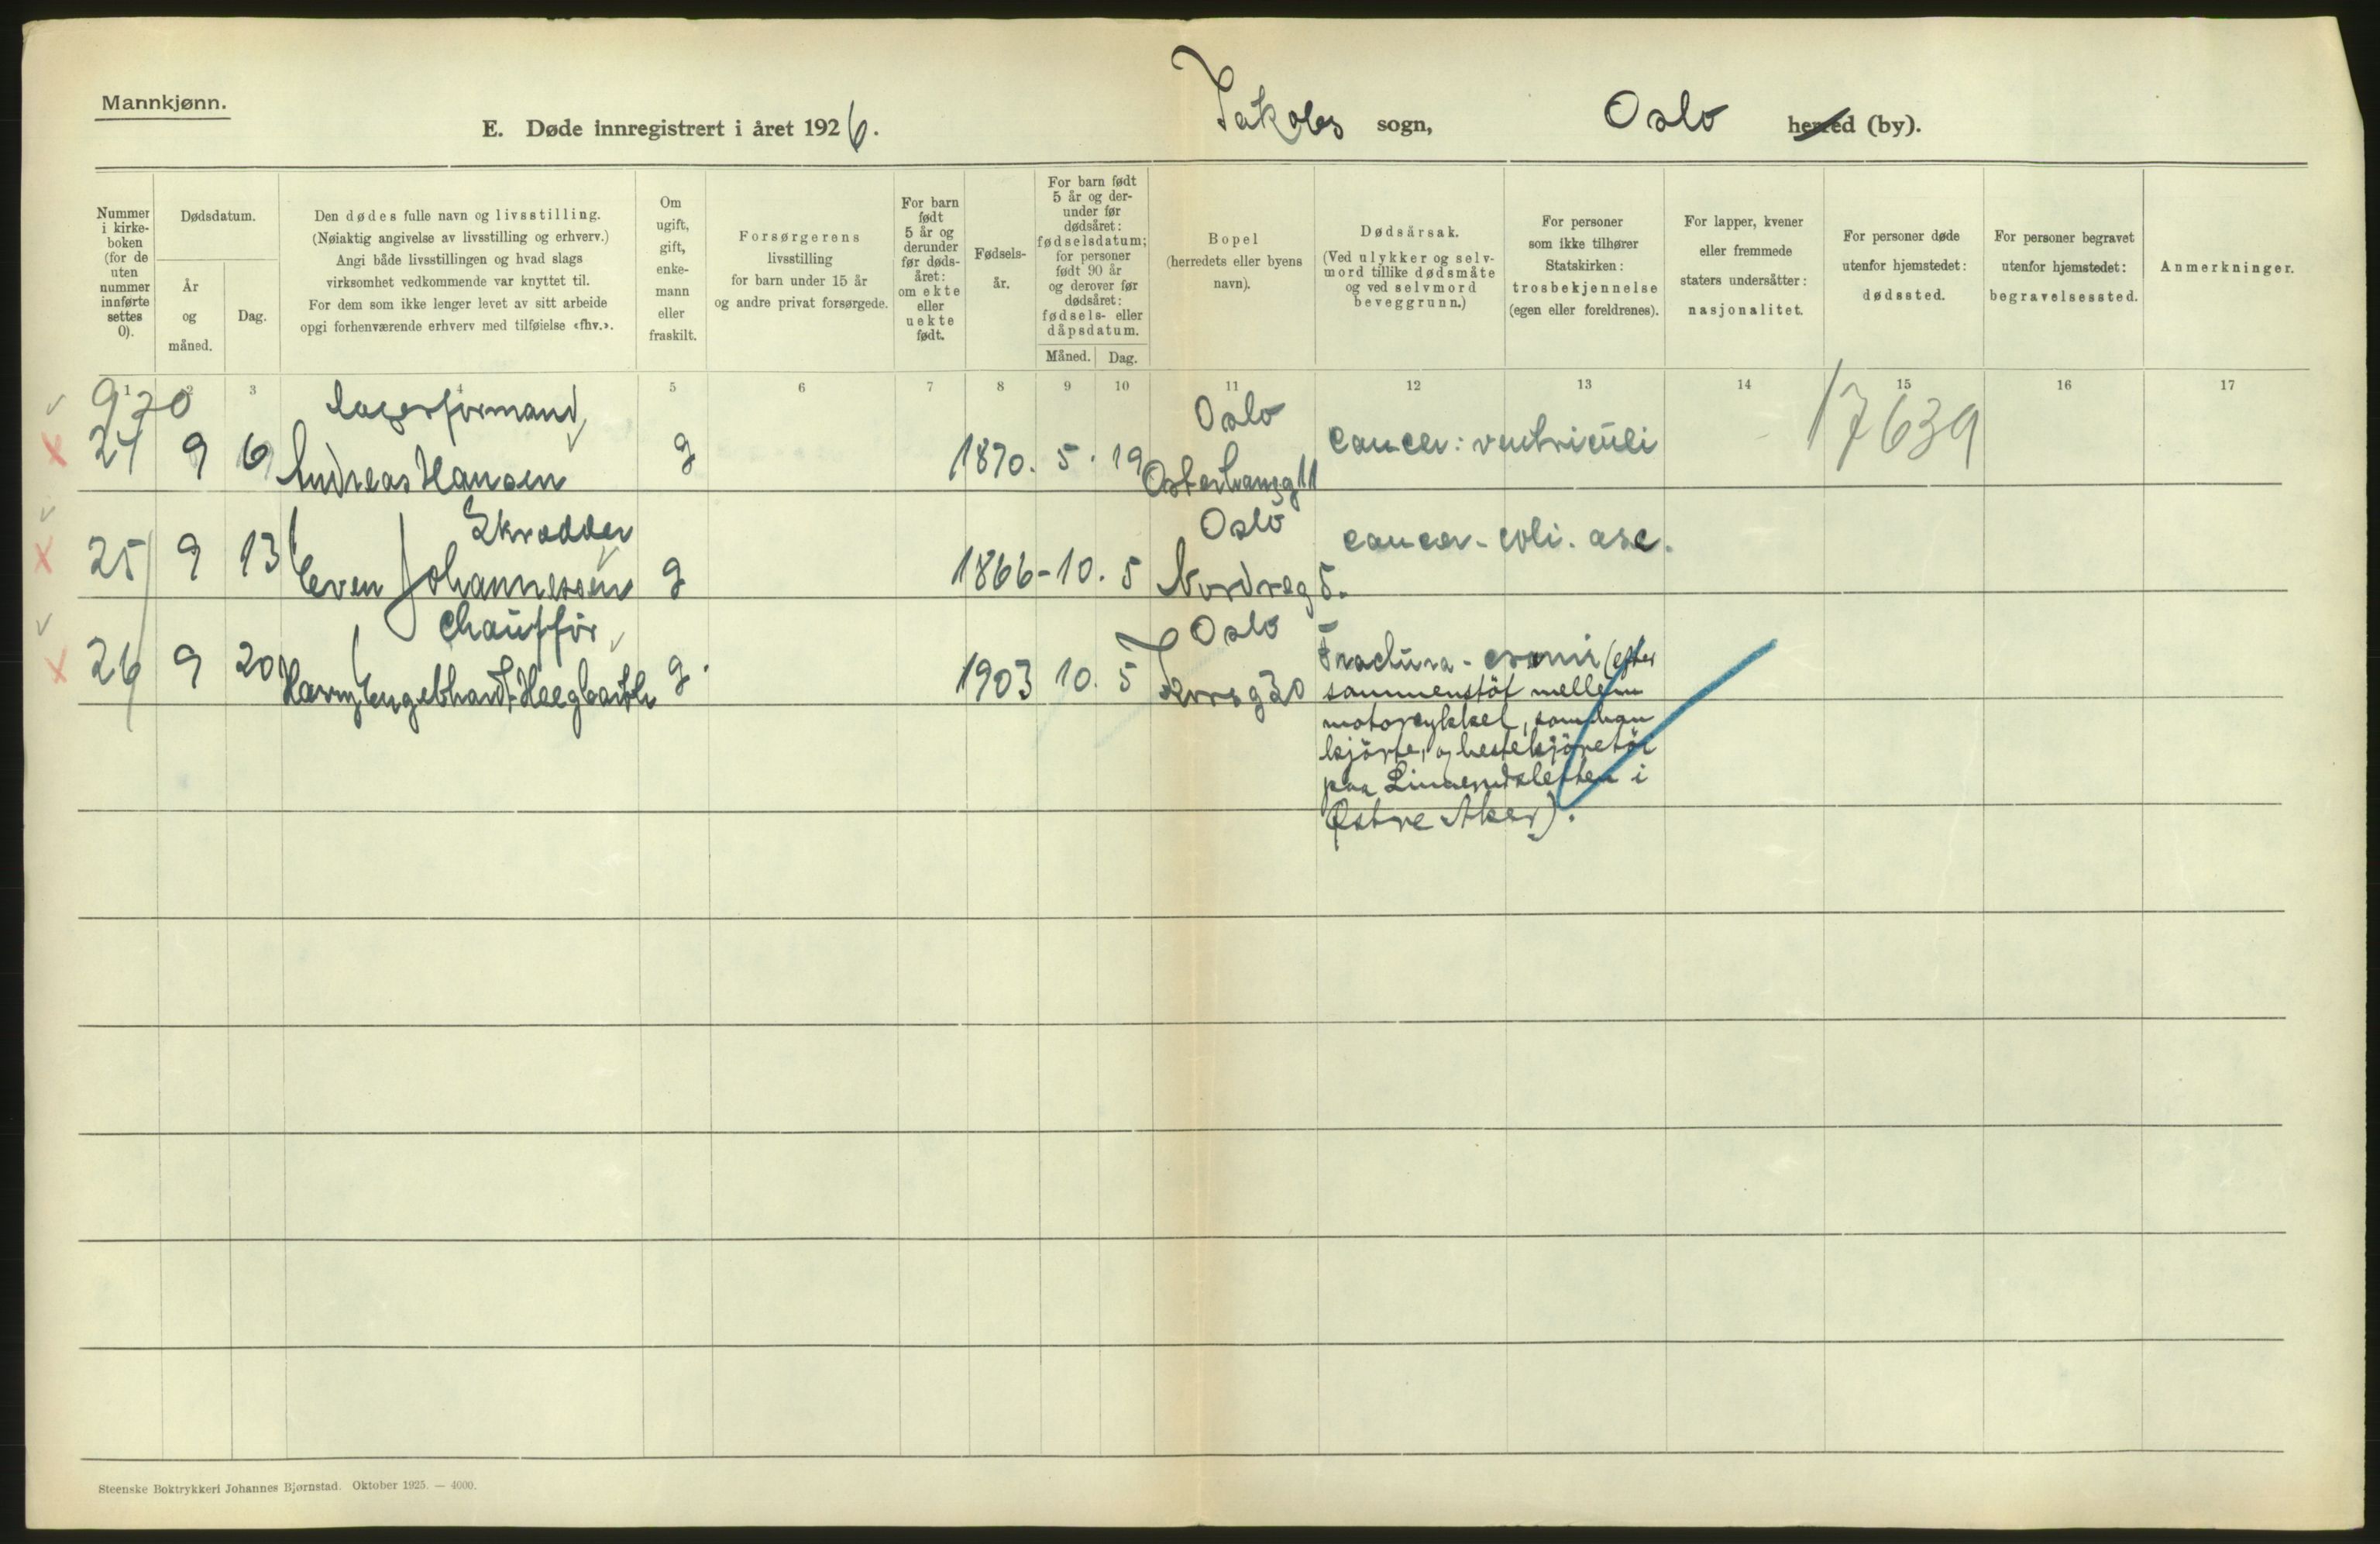 Mannkjønn.
E. Døde innregistrert i året 1926.
Jakobs sogn, Oslo herred (by).
Nummer i kirke-boken (for de uten nummer innførte settes 0).
Dødsdatum.
År og måned.
Dag.
Den dødes fulle navn og livsstilling.
(Nøiaktig angivelse av livsstilling og erhverv.)
Angi både livsstillingen og hvad slags
virksomhet vedkommende var knyttet til.
For dem som ikke lenger levet av sitt arbeide
opgi forhenværende erhverv med tilføielse «fhv.».
Om ugift, gift, enke-mann eller fraskilt.
Forsørgerens
livsstilling
for barn under 15 år
og andre privat forsørgede.
For barn født 5 år og derunder før døds-året: om ekte eller uekte født.
Fødsels-år.
For barn født 5 år og der-under før dødsåret: fødselsdatum; for personer født 90 år og derover før dødsåret: fødsels- eller dåpsdatum.
Måned. Dag.
Bopel
(herredets eller byens
navn).
Dødsårsak.
(Ved ulykker og selv-
mord tillike dødsmåte
og ved selvmord
beveggrunn.)
For personer
som ikke tilhører
Statskirken:
trosbekjennelse
(egen eller foreldrenes).
For lapper, kvener
eller fremmede
staters undersåtter:
nasjonalitet.
For personer døde
utenfor hjemstedet:
dødssted.
For personer begravet
utenfor hjemstedet:
begravelsessted.
Anmerkninger.
1 2 3 4 5 6 7 8 9 10 11 12 13 14 15 16 17
970
lagerformand
Oslo
17639
24 9 6 Andreas Hansen g 1870. 5. 19 Osterhausg 11 cancer: ventriculi
Skrædder
Oslo
25 9 13 Even Johannessen g 1866-10. 5 Nordreg 5. cancer-coli. asc.
Chauffør
Oslo
26 9 20 Harry Engebhardt g. 1903 10. 5 30 Fractura-cranii (efter
sammenstöt mellem
motorcykkel, som han
kjörte, og hestekjöretöi
paa i
Østre Aker).
Steenske Boktrykkeri Johannes Bjørnstad. Oktober 1925. — 4000.